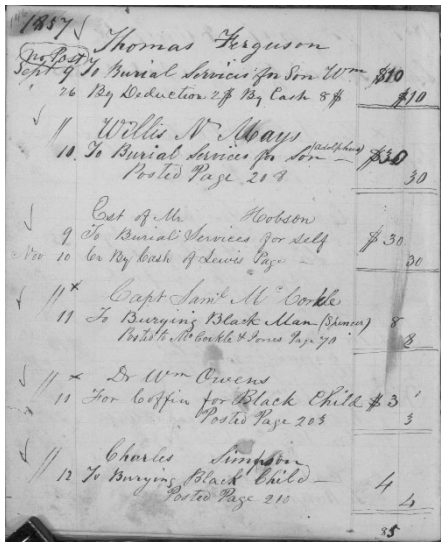 1857
Thomas Ferguson
no Post
Sept 9 To Burial Services for Son Wm $10
26 By Deduction 2$ By Cash 8$ $10
" Willis N Mays
10. To Burial Services for Son (Adolphus) — $30
Posted Page 208 30
Est of Mr Hobson
9 To Burial Services for self $30
Nov 10 Cr By Cash of Lewis Page — 30
" x Capt Saml McCorkle
11 To Burying Black Man (Spencer) 8
Posted to McCorkle & Jones Page 70 8
" x Dr Wm Owens
11 For Coffin for Black Child $3
Posted Page 203 3
" Charles Simpson
12 To Burying Black Child — 4
Posted Page 210 4
85